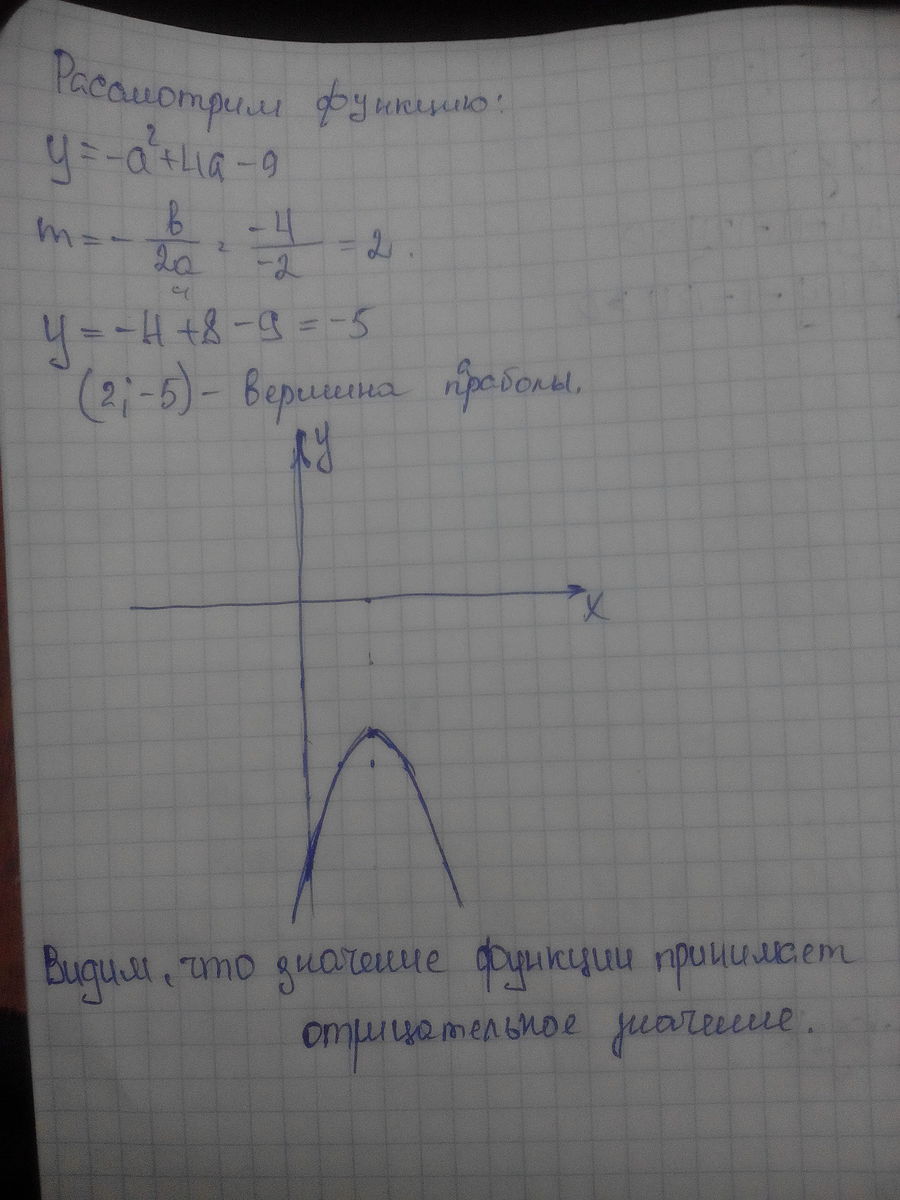 Рассмотрим функцию:
y = -a² + 4a - 9
m = - b/2a = -4/-2 = 2.
y = -4 + 8 - 9 = -5
(2; -5) - вершина праболы.
y
x
Видим, что значение функции принимает
отрицательное значение.